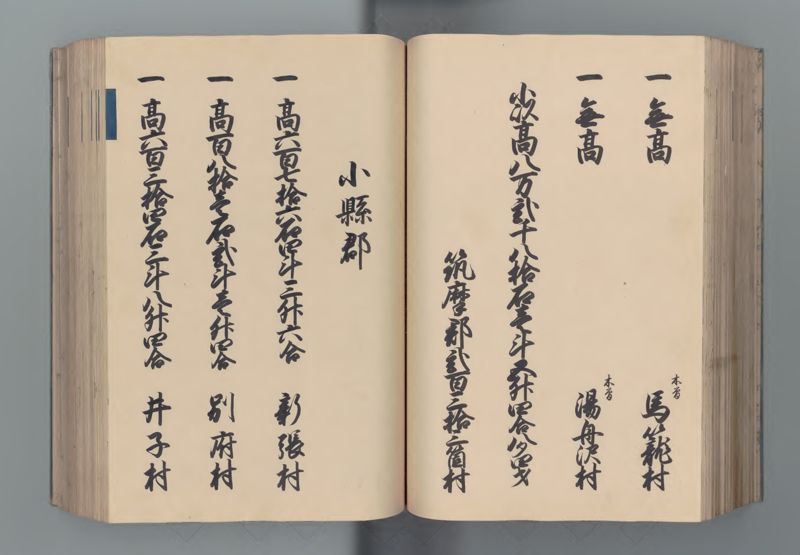 一 無高 木曽 馬籠村
一 無高 木曽 湯舟沢村
小以高八万弐千八拾石壱斗五升四合八夕四才
筑摩郡弐百三拾三箇村
小縣郡
一 高六百七拾六石四斗三升六合 新張村
一 高百八拾壱石弐斗壱升四合 別府村
一 高六百三拾四石三斗八升四合 井子村